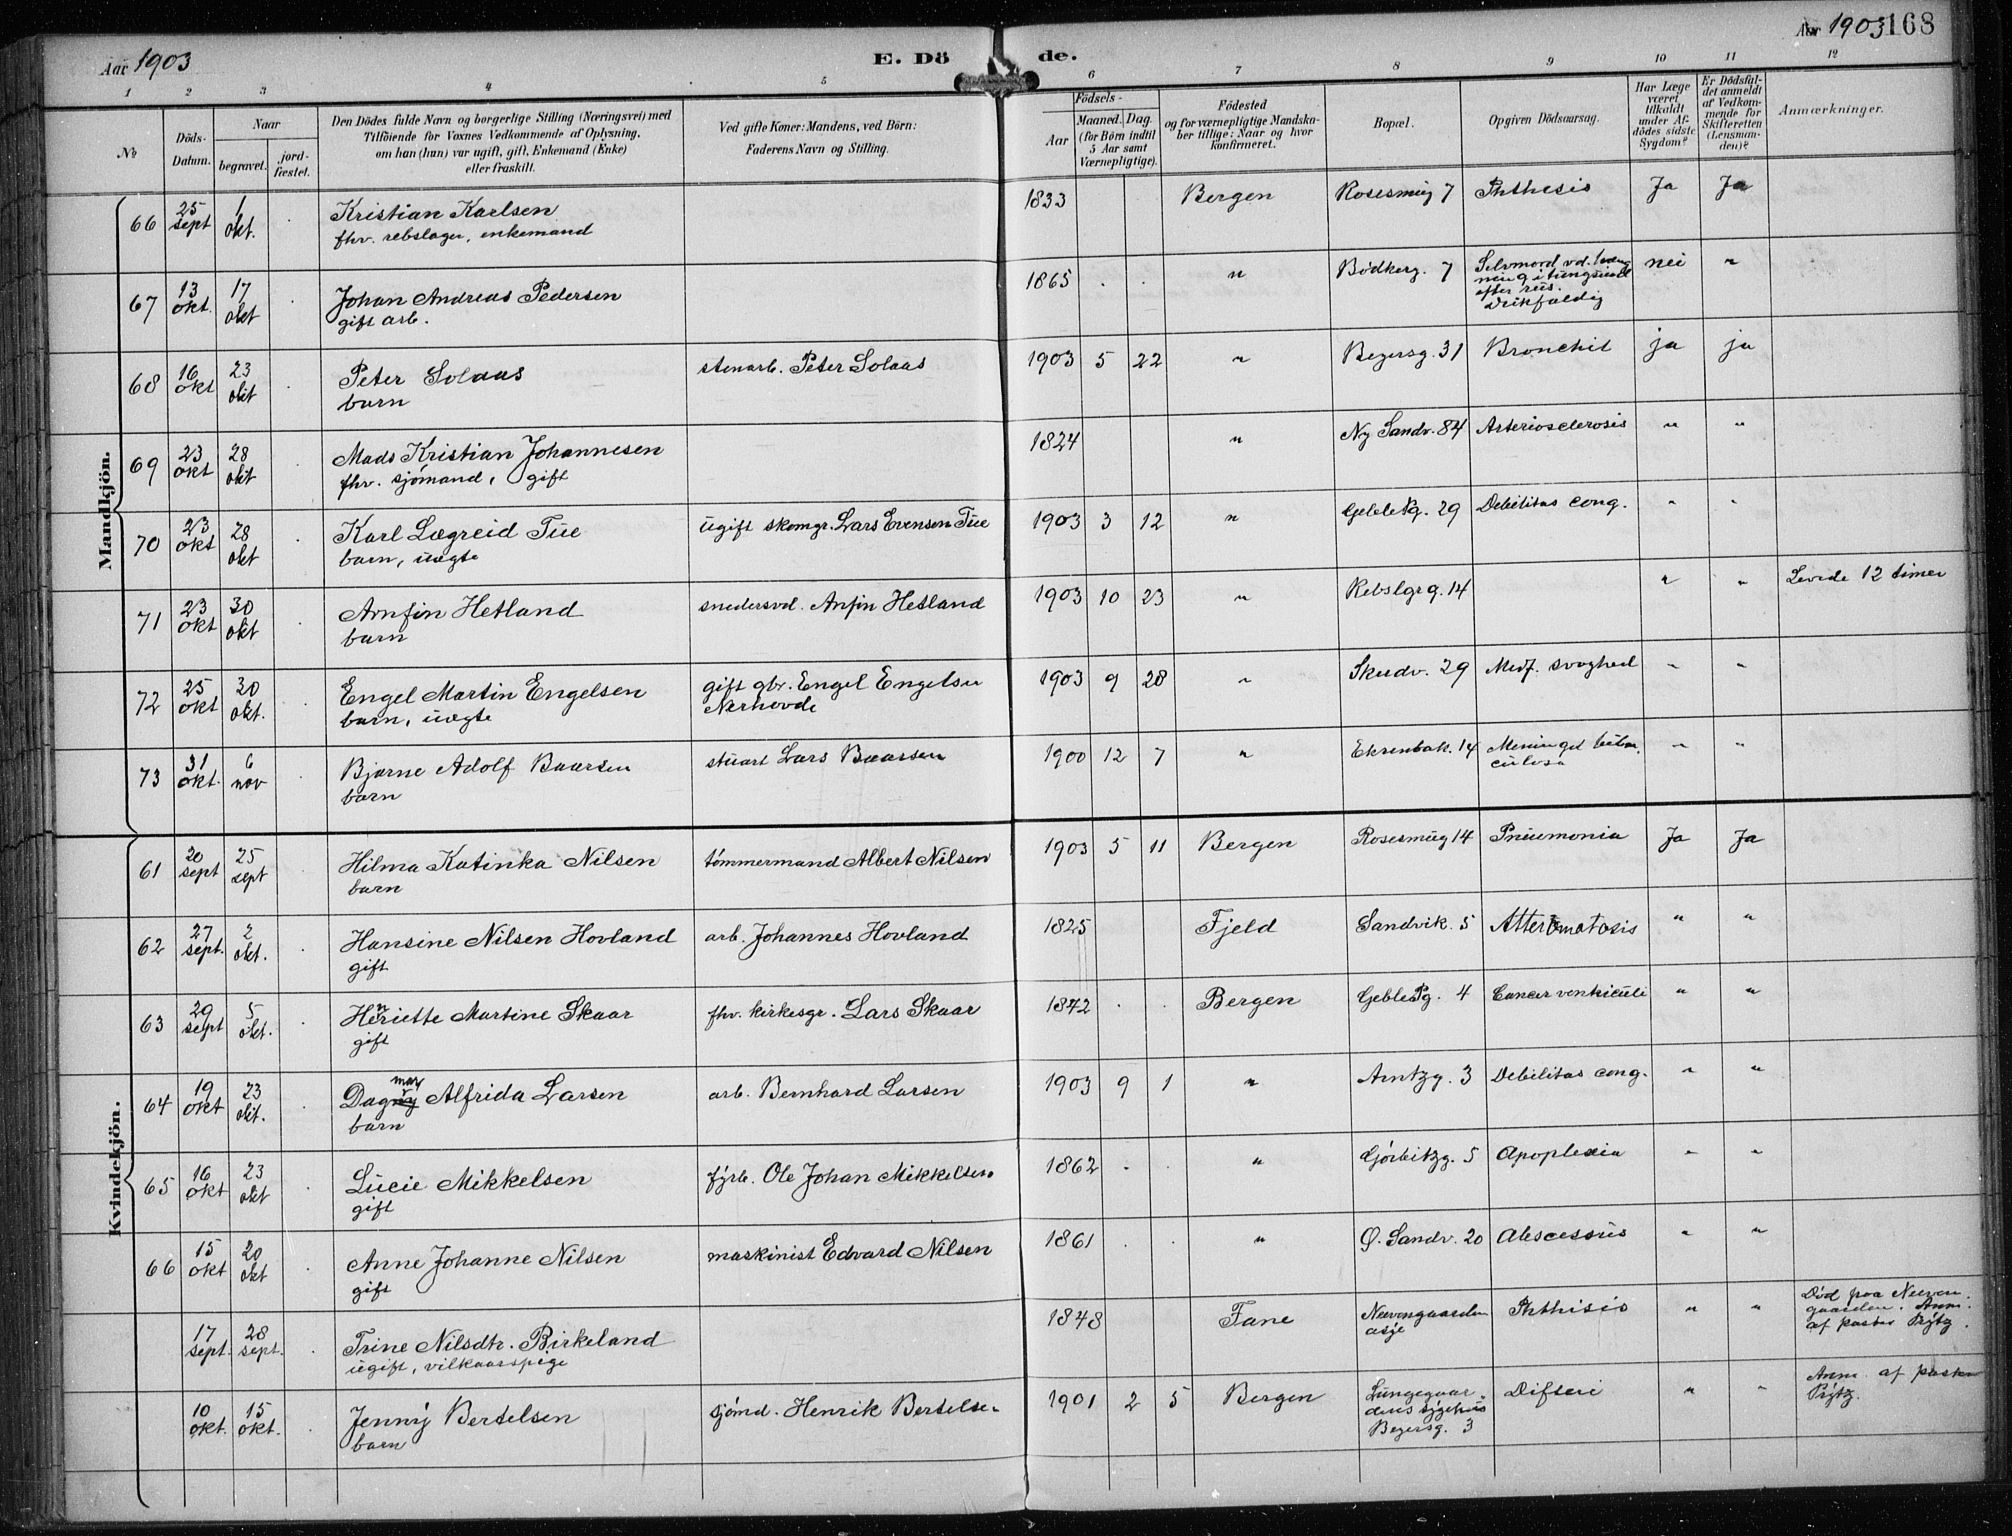 Aar 1903
E. Dö de.
Aar 1903 168
1 2 3 4 5 6 7 8 9 10 11 12
№
Döds-Datum.
Naar
begravet.
jord-fæstet.
Den Dödes fulde Navn og borgerlige Stilling (Næringsvei) med
Tilföiende for Voxnes Vedkommende af Oplysning,
om han (hun) var ugift, gift, Enkemand (Enke)
eller fraskilt.
Ved gifte Koner: Mandens, ved Börn:
Faderens Navn og Stilling.
Födsels-
Aar
Maaned. Dag.
(for Börn indtil
5 Aar samt
Værnepligtige).
Födested
og for værnepligtige Mandska-
ber tillige: Naar og hvor
konfirmeret.
Bopæl.
Opgiven Dödsaarsag.
Har Læge
været
tilkaldt
under Af-
dödes sidste
Sygdom?
Er Dödsfal-
det anmeldt
af Vedkom-
mende for
Skifteretten
(Lensman-
den)?
Anmærkninger.
Mandkjön.
66 25 sept 1 okt. Kristian Karlsen 1833 Bergen Rosesmug 7 Phthesis Ja Ja
fhv. rebslager, enkemand
67 13 okt. 17 okt Johan Andreas Pedersen 1865 " Bödkerg. 7 Selvmord vd. hæng
ning i tungsind
efter rus.
Drikfældig nei "
gift arb.
68 16 okt 23 okt Peter Solaas stenarb. Peter Solaas 1903 5 22 " Beyersg. 31 Bronchit ja ja
barn
69 23 okt 28 okt Mads Kristian Johannesen 1824 " Ny Sandv. 84 Arteriosclerosis " "
fhv. sjómand, gift
70 23 okt 28 okt Karl Lægreid Tue ugift skomgr. Lars Evensen Tue 1903 3 12 " Geble Pg. 29 Debilitas cong. " "
barn, uægte
71 23 okt 30 okt Arnfin Hetland snedersvd. Anfin Hetland 1903 10 23 " Rebslgrg. 14 " " Levede 12 timer
barn
72 25 okt 30 okt. Engel Martin Engelsen gift gbr. Engel Engelsen
Nerhovde 1903 9 28 " Skudv. 29 Medf. svaghed " "
barn, uægte
73 31 okt. 6 nov Bjarne Adolf Baarsen stuart Lars Baarsen 1900 12 7 " Ekrenbak. 14 Meningit tuber
culosa " "
barn
Kvindekjön.
61 20 sept 25 sept Hilma Katinka Nilsen tómmermand Albert Nilsen 1903 5 11 Bergen Rosesmug 14 Pneumonia Ja Ja
barn
62 27 sept. 2 okt. Hansine Nilsen Hovland arb. Johannes Hovland 1825 Fjeld Sandvik. 5 Atteromatosis " "
gift
63 29 sept 5 okt. Henriette Martine Skaar fhv. kirkesgr. Lars Skaar 1842 Bergen Geble Pg. 4 Cancer ventriculi " "
gift
64 19 okt 23 okt. Dagmar Alfrida Larsen arb. Bernhard Larsen 1903 9 1 " Arntzg. 3 Debilitas cong. " "
barn
65 16 okt 23 okt Lucie Mikkelsen fyrb. Ole Johan Mikkelsen 1862 " Gjórbitzg. 5 Apoplexia " "
gift
66 15 okt 20 okt Anne Johanne Nilsen maskinist Edvard Nilsen 1861 " Ø. Sandv. 20 Abscessus " "
gift
17 sept. 28 sept. Trine Nilsdtr. Birkeland 1848 Fane Neevengaarden
asje Phthisis " " Död paa Neeven
gaarden. Anm.
af pastor Prytz.
ugift, vilkaarspige
10 okt. 15 okt. Jenny Bertelsen sjómd. Henrik Bertelsen 1901 2 5 Bergen Lungegaar
dens sygehus
Beyersg. 3 Difteri " " Anm. af pastor
Prytz.
barn